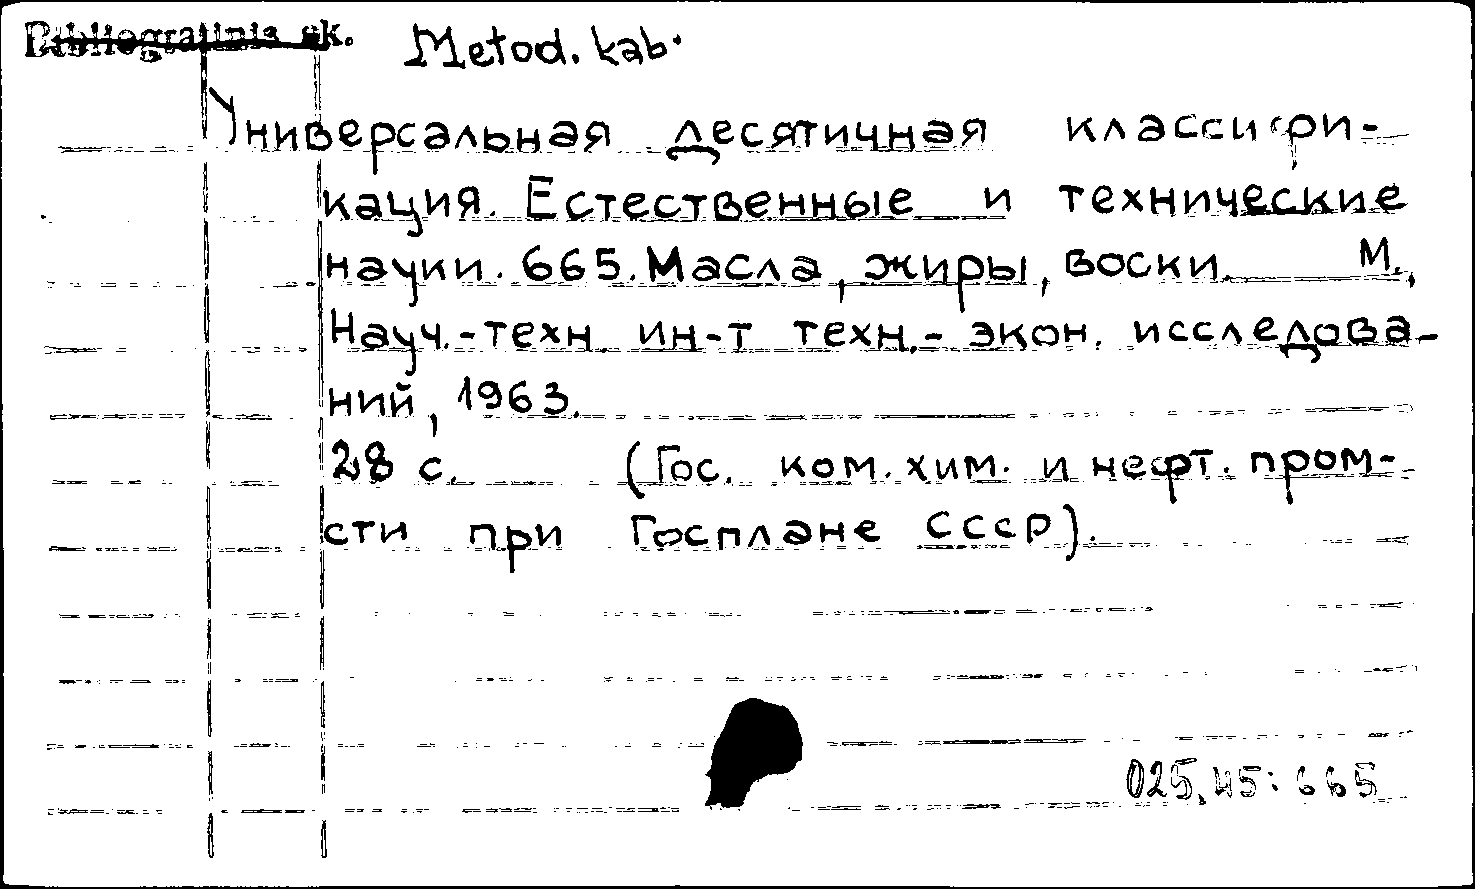 Bibliografinis sk. Metod. kab.
Универсальная десятичная классифи-
кация. Естественные и технические
науки. 665. Масла, жиры, воски. М.,
Науч.-техн. ин-т техн.-экон. исследова-
ний, 1963.
28 с. (Гос. ком. хим. и нефт. пром-
сти при Госплане СССР).
025.45:665